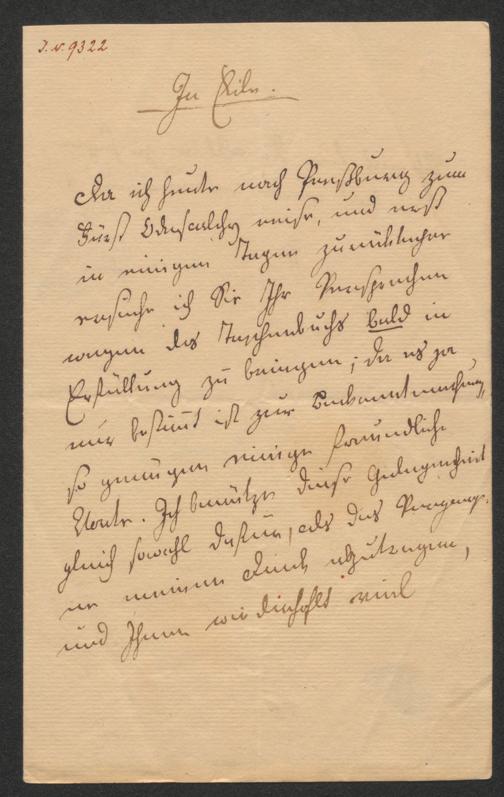 I. N. 9322
In Eile.
Da ich heute nach Preßburg zum
Fürst Odescalchy reise, und erst
in einigen Tagen zurückkehre
ersuche ich Sie Ihr Versprechen
wegen des Taschenbuchs bald in
Erfüllung zu bringen; da es ja
nur bestimt ist zur Bekanntmachung,
so genügen einige freundliche
Worte. Ich benütze diese Gelegenheit
gleich sowohl dafür, als das Vergange-
ne meinen Dank abzutragen,
und Ihnen wiederholt viel